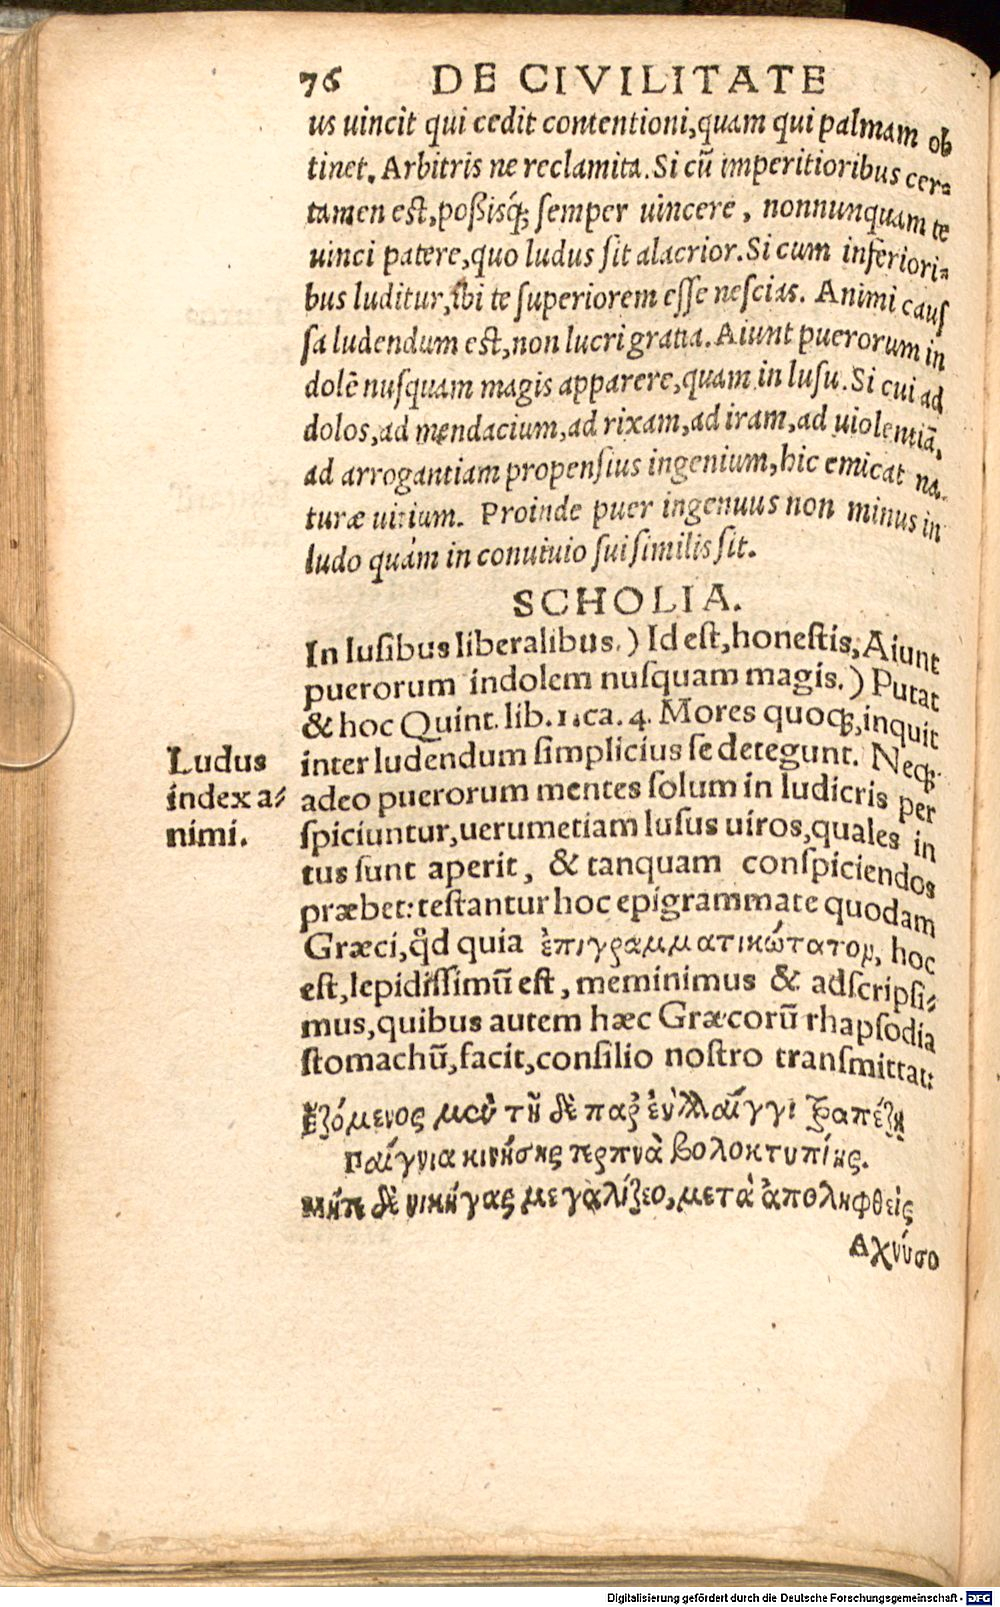 76 DE CIVILITATE
us uincit qui cedit contentioni, quam qui palmam ob
tinet. Arbitris ne reclamita. Si cũ imperitioribus cer⸗
tamen est, poßisq́; semper uincere, nonnunquam te
uinci patere, quo ludus sit alacrior. Si cum inferiori⸗
bus luditur, ibi te superiorem esse nescias. Animi caus
sa ludendum est, non lucri gratia. Aiunt puerorum in
dolẽ nusquam magis apparere, quam in lusu. Si cui ad
dolos, ad mendacium, ad rixam, ad iram, ad uiolentiã,
ad arrogantiam propensius ingenium, hic emicat na⸗
turæ uitium. Proinde puer ingenuus non minus in
ludo quàm in conuiuio sui similis sit.
SCHOLIA.
In lusibus liberalibus.) Id est, honestis, Aiunt
puerorum indolem nusquam magis.) Putat
& hoc Quint. lib. 1. ca. 4. Mores quoq;, inquit
inter ludendum simplicius se detegunt. Neq;
adeo puerorum mentes solum in ludicris per
spiciuntur, uerumetiam lusus uiros, quales in
tus sunt aperit, & tanquam conspiciendos
præbet: testantur hoc epigrammate quodam
Græci, q̃d quia ἐπιγραμματικώτατον, hoc
est, lepidissimũ est, meminimus & adscripsi⸗
mus, quibus autem hæc Græcorũ rhapsodia
stomachũ, facit, consilio nostro transmittat:
Ludus
index a⸗
nimi.
Ἑζόμενος μὲν τῇ δὲ παρ' ἐυλάϊγγι τραπέζῃ
Παίγνια κινήσῃς τερπνὰ βολοκτυπίης.
Μήτε δὲ νικήσας μεγαλίζεο, μετὰ ἀπολῃφθεὶς
Αχνύσο